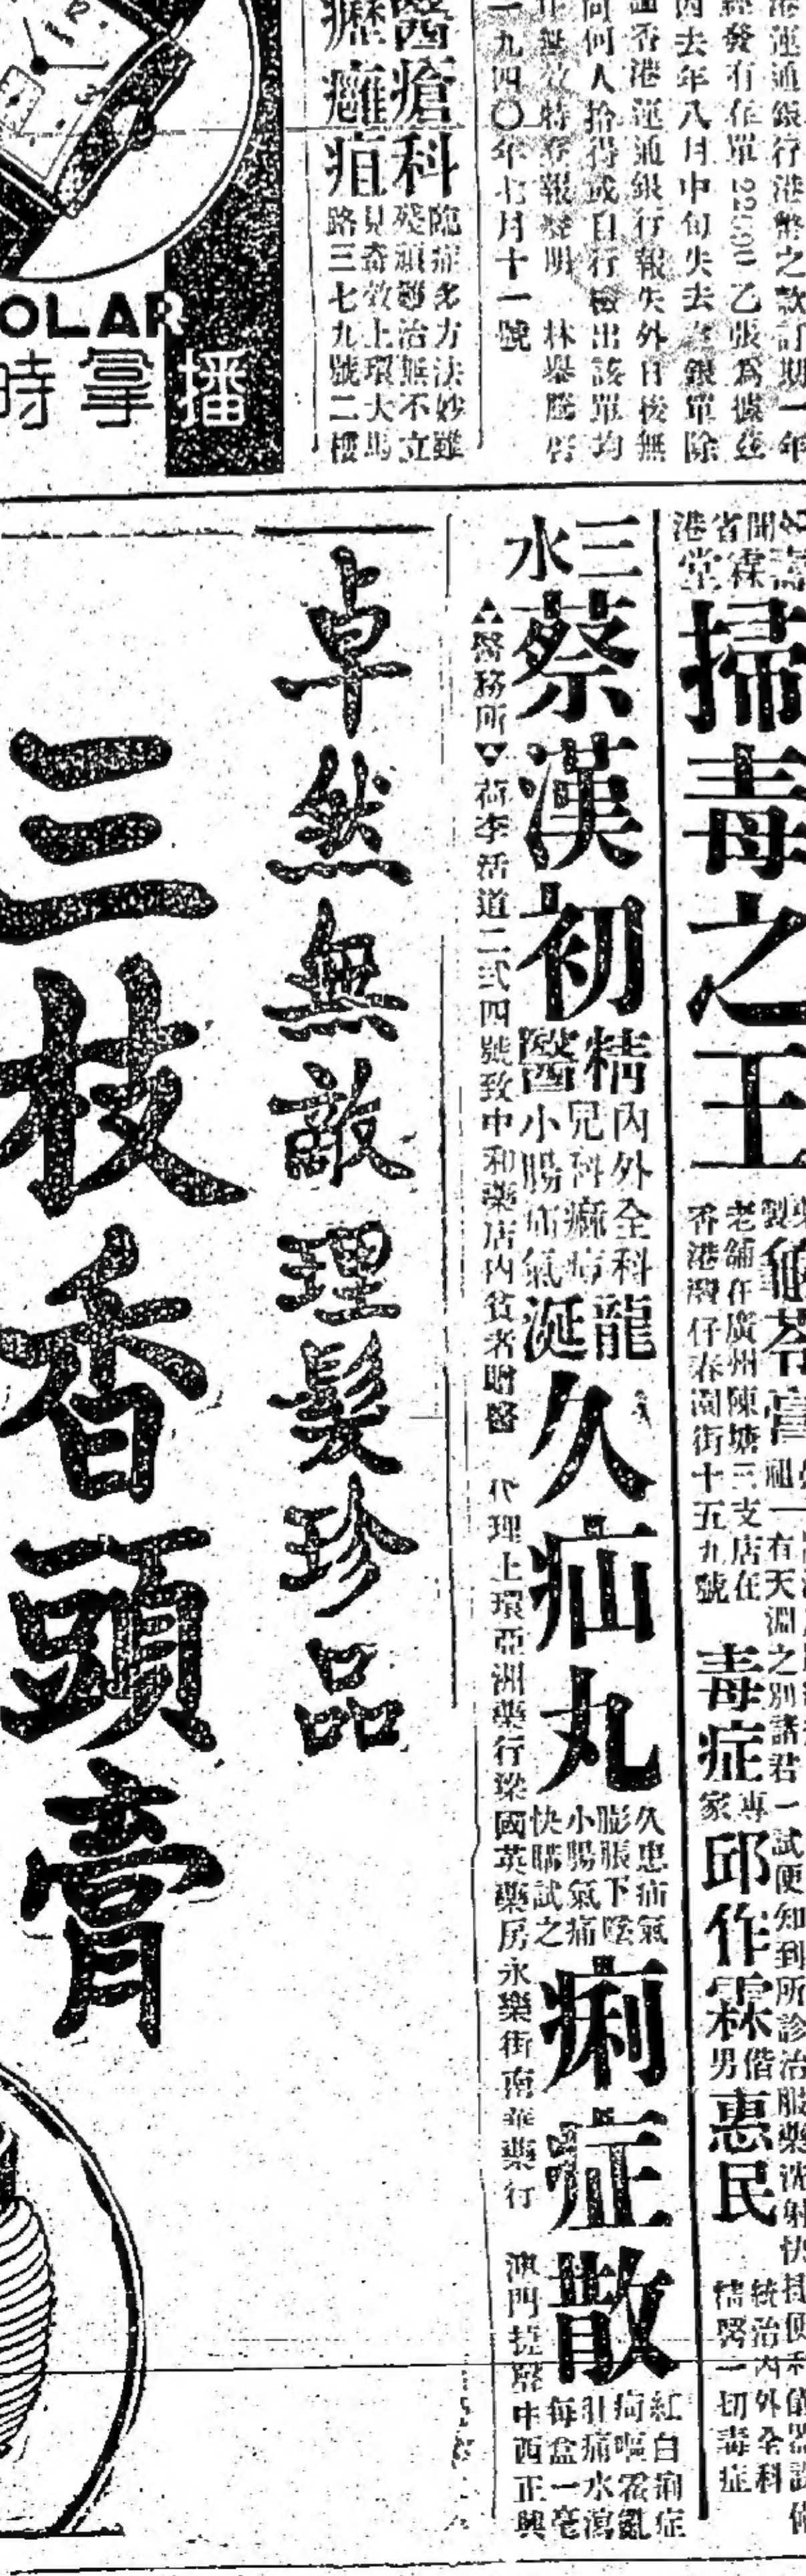 港運通銀行港幣之款訂期一年
發有存單
去年八月中旬失去該銀單除
香港運通銀行報失外日後無
何人拾得或自行檢出該單均
無效特登報聲明 林舉
一九四〇年七月十一號
醫瘡科
癰疽
臨症多方法妙雖
殘頑難治無不立
見奇效上環大馬
路三七九號二樓
OLAR
播拿時
省港
霖堂
掃毒之王
製龜苓膏
老舖在廣州陳塘三支店在
香港灣仔春園街十五九號
有天淵之別諸君一試便知到所診治服藥
毒症專家
邱作霖
偕男
惠民
統治內外全科
精醫一切毒症
三水
蔡漢初
精醫
內外全科
兒科癲痘
小腸疝氣
龍涎
久疝丸
久患疝氣
膨脹下墜
小腸氣痛
快購試之
痢症散
紅白痢症
痾嘔霍亂
肚痛水瀉
每盒一毫
醫務所
荷李活道二弍四號致中和藥店內貧者贈醫
代理上環亞洲藥行梁國英藥房永樂街南華藥行
澳門
中西正興
卓然無敵理髮珍品
三枝香頭膏